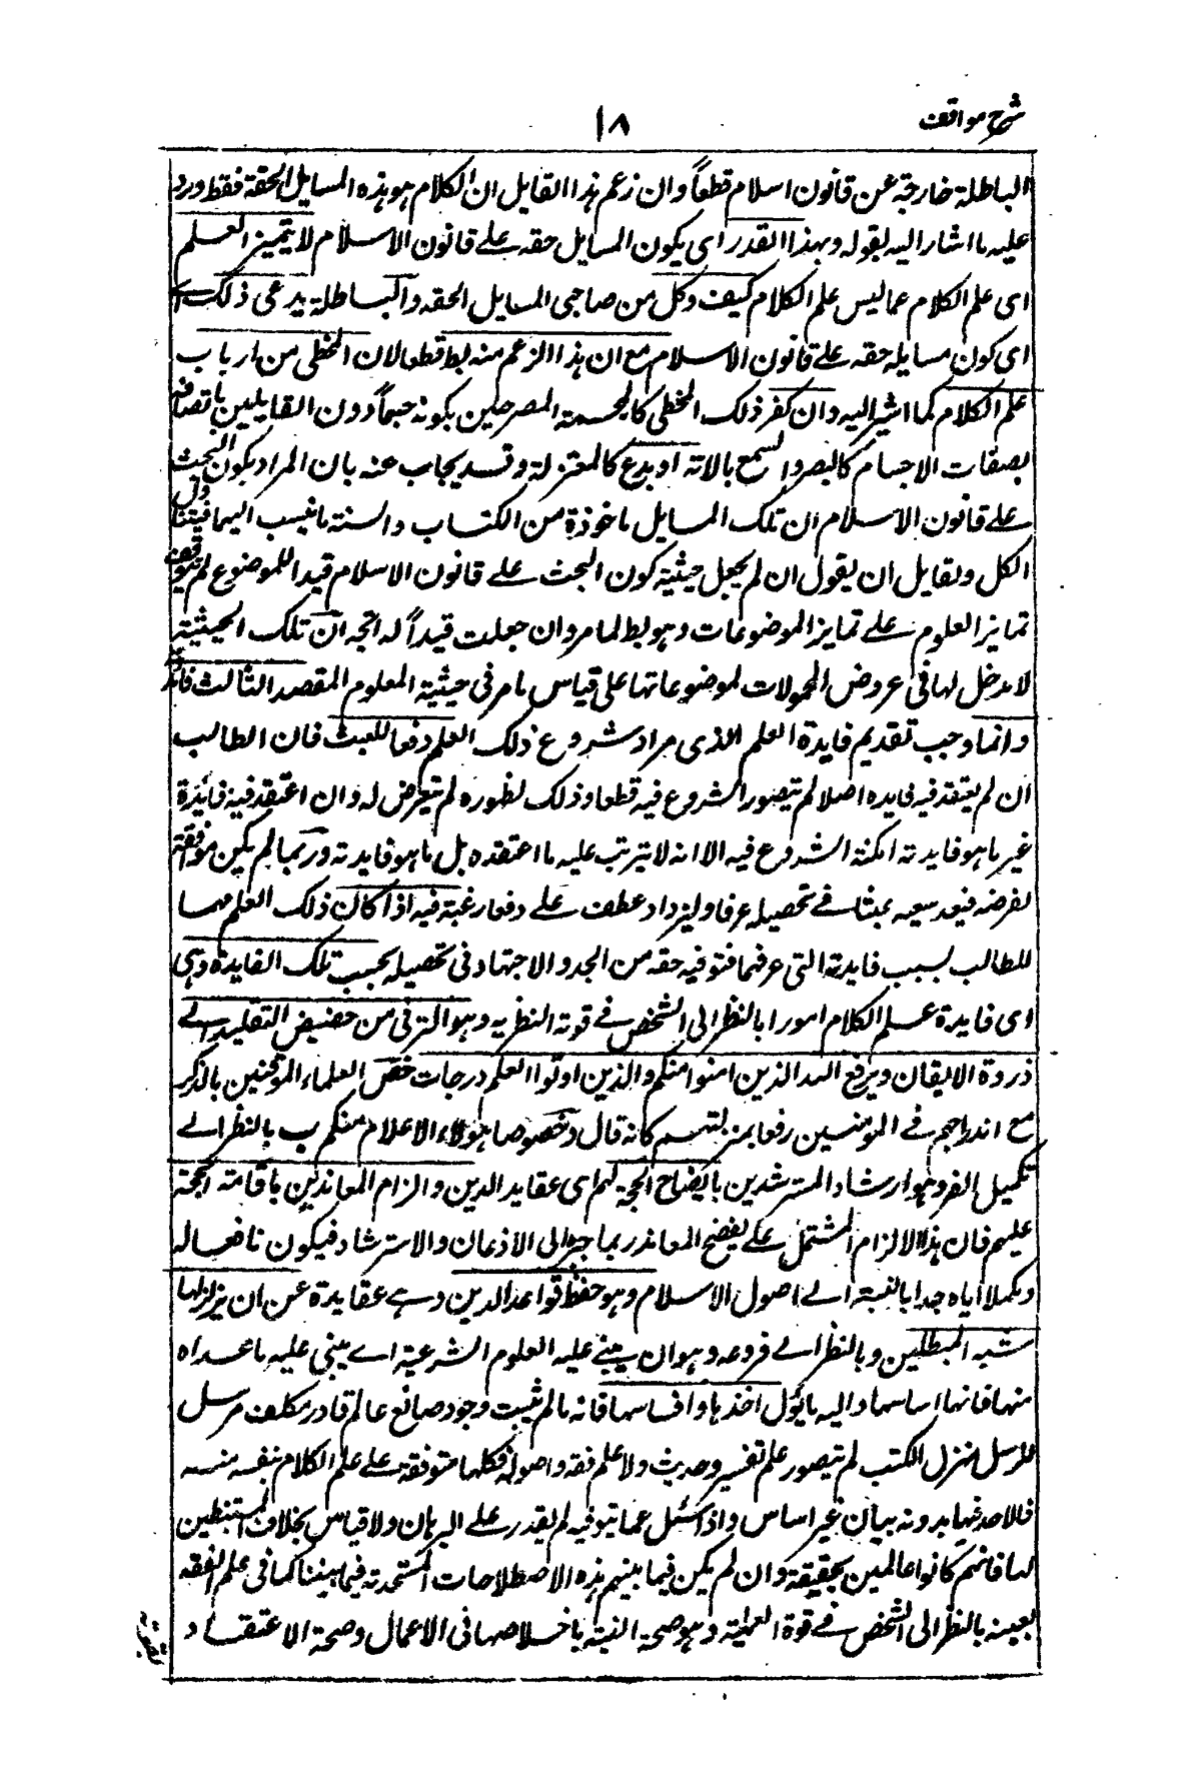 شرح مواقف
١٨
الباطلة خارجة عن قانون اسلام قطعاً وان زعم هذا القايل ان الكلام هو هذه المسايل الحقة فقط ورد
عليه ما اشار اليه بقوله وبهذا القدر اى يكون المسايل حقه على قانون الاسلام لا يتميز العلم
اى علم الكلام عما ليس علم الكلام كيف وكل من صاحبى المسايل الحقه والباطلة يدعى ذلك
اى كون مسايله حقه على قانون الاسلام مع ان هذا الزعم منه بط قطعا لان المخطى من ارباب
علم الكلام كما اشير اليه وان كفر ذلك المخطى كالمجسمة المصرحين بكونه جسماً دون القايلين باتصافه
بصفات الاجسام كالبصر والسمع بالاته او بدع كالمعتزلة وقد يجاب عنه بان المراد بكون البحث
على قانون الاسلام ان تلك المسايل ماخوذة من الكتاب والسنة وما ينسب اليهما فيتناول
الكل ولقايل ان يقول ان لم يجعل حيثية كون البحث على قانون الاسلام قيدا للموضوع لم يتوقف
تمايز العلوم على تمايز الموضوعات وهو بط لما مر وان جعلت قيداً له اتجه ان تلك الحيثية
لا مدخل لها فى عروض المحمولات لموضوعاتها على قياس ما مر فى حيثية المعلوم المقصد الثالث فائدته
وانما وجب تقديم فايدة العلم الذى مراد شروع ذلك العلم دفعا للعبث فان الطالب
ان لم يعتقد فيه فايده اصلا لم يتصور الشروع فيه قطعا وذلك لظهوره لم يتعرض له وان اعتقد فيه فائدة
غير ما هو فايدته امكنه الشروع فيه الا انه لا يترتب عليه ما اعتقده بل ما هو فايدته وربما لم يكن موافقة
لغرضه فيعد سعيه عبثا فى تحصيله عرفا وليزداد عطف على دفعا رغبة فيه اذا كان ذلك العلم مهما
للطالب بسبب فايدته التى عرفها فتوفيه حقه من الجد والاجتهاد فى تحصيله بحسب تلك الفايدة وهى
اى فايدة علم الكلام امور ا بالنظر الى الشخص فى قوته النظريه وهو الترقى من حضيض التقليد الى
ذروة الايقان ويرفع الله الذين امنوا منكم والذين اوتوا العلم درجات خص العلماء الموقنين بالذكر
مع اندراجهم فى المومنين رفعا بمنزلتهم كانه قال وخصوصا هؤلاء الاعلام منكم ب بالنظر الى
تكميل الغير وهو ارشاد المسترشدين بايضاح الحجة لهم اى عقايد الدين والزام المعاندين باقامة الحجة
عليهم فان هذا الالزام المشتمل على تفضيح المعاند ربما جره الى الاذعان والاسترشاد فيكون نافعا له
ومكملا اياه جدا بالنسبة الى اصول الاسلام وهو حفظ قواعد الدين وهى عقايدة عن ان يزلزلها
شبه المبطلين و بالنظر الى فروعه وهو ان يبنى عليه العلوم الشرعية اى يبنى عليه ما عداه
منها فانها اساسها واليه يأول اخذها واقتباسها فانه ما لم يثبت وجود صانع عالم قادر مكلف مرسل
للرسل منزل الكتب لم يتصور علم تفسير وحديث ولا علم فقه واصوله فكلها متوقفة على علم الكلام مقتبسه منه
فالاخذ فيها بدونه ببان غير اساس واذا سئل عما يتوفيه لم يقدر على البرهان ولا قياس بخلاف المستنبطين
لها فانهم كانوا عالمين بحقيقة وان لم يكن فيما بينهم هذه الاصطلاحات المستحدثة فيما بيننا كما فى علم الفقه
بعينه بالنظر الى الشخص فى قوة العملية وهو صحة النية باخلاصها فى الاعمال وصحة الاعتقاد